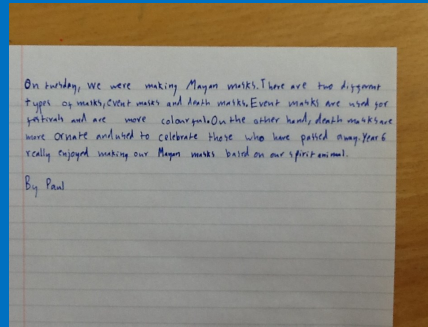 On tuesday, we were making Mayan masks. There are two different
types of masks, event masks and death masks. Event masks are used for
festivals and are more colourful. On the other hand, death masks are
more ornate and used to celebrate those who have passed away. Year 6
really enjoyed making our Mayan masks based on our spirit animal.
By Paul